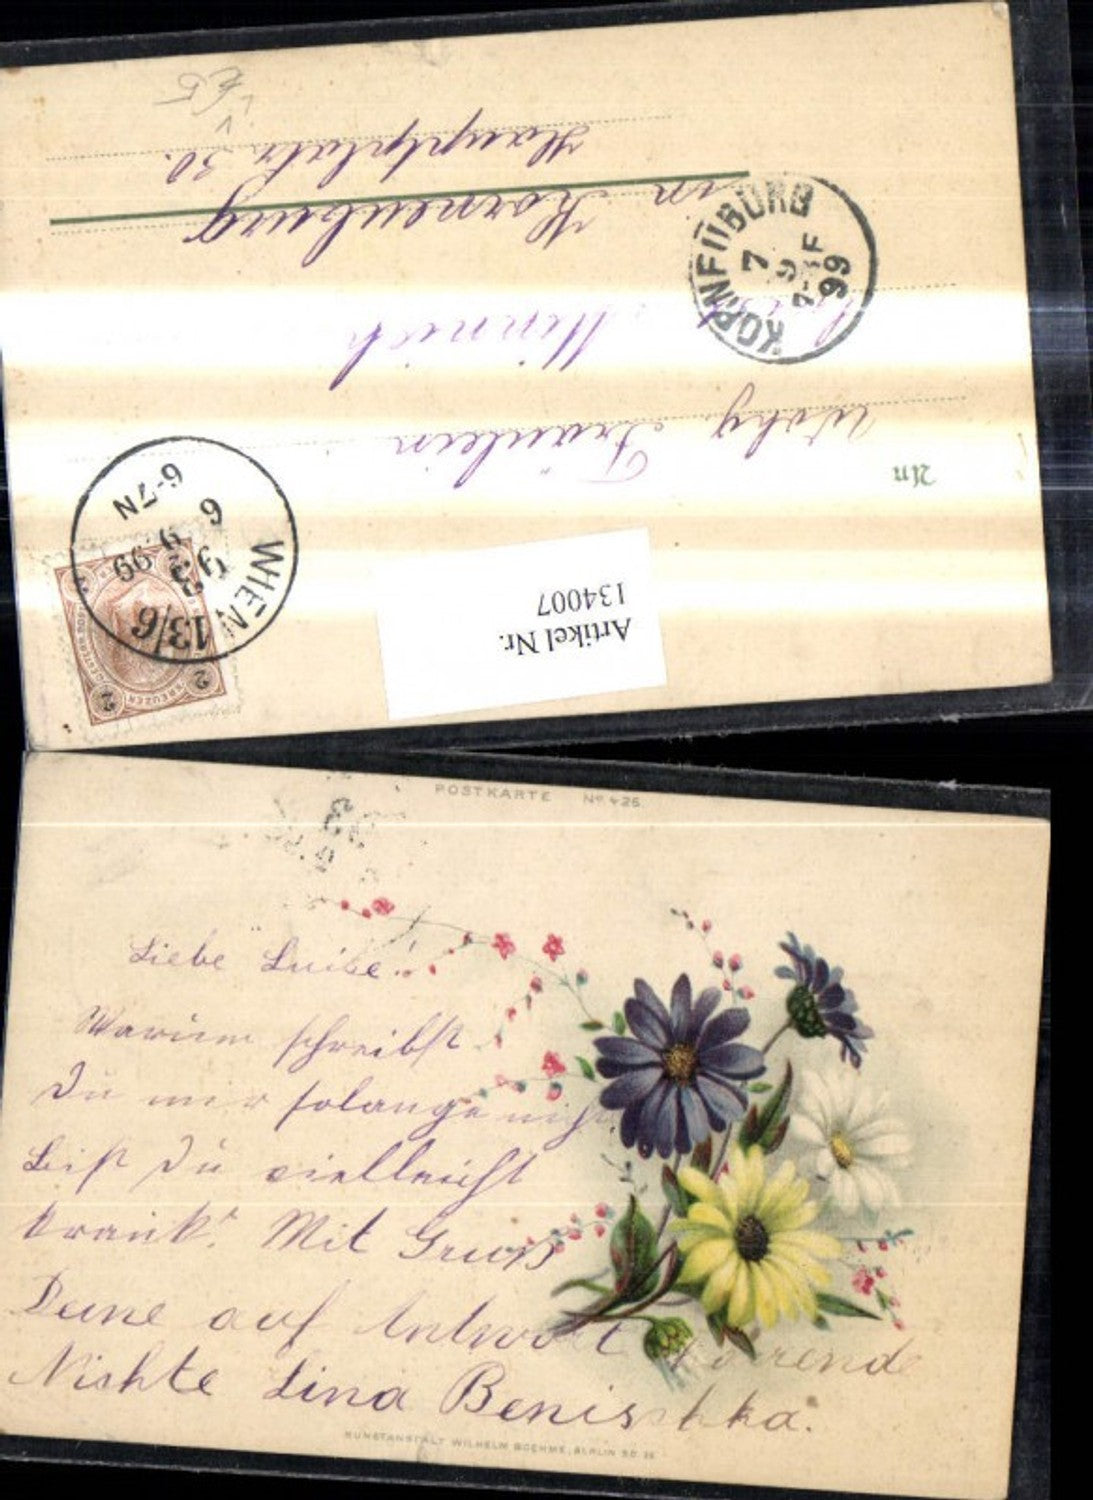 Artikel Nr.
134007
WIEN
13/6
93
6 9 99
6-7N
2 2
KREUZER
An
Wohg. Fräulein
Luise Minnich
in Korneuburg
Hauptplatz 30.
KORNEUBURG
7
9
7-F
99
POSTKARTE No 426
Liebe Luise!
Warum schreibst
Du mir solange nicht
bist Du vielleicht
krank? Mit Gruß
Deine auf Antwort harrende
Nishte Lina Benischka.
KUNSTANSTALT WILHELM BOEHME, BERLIN SO. 26